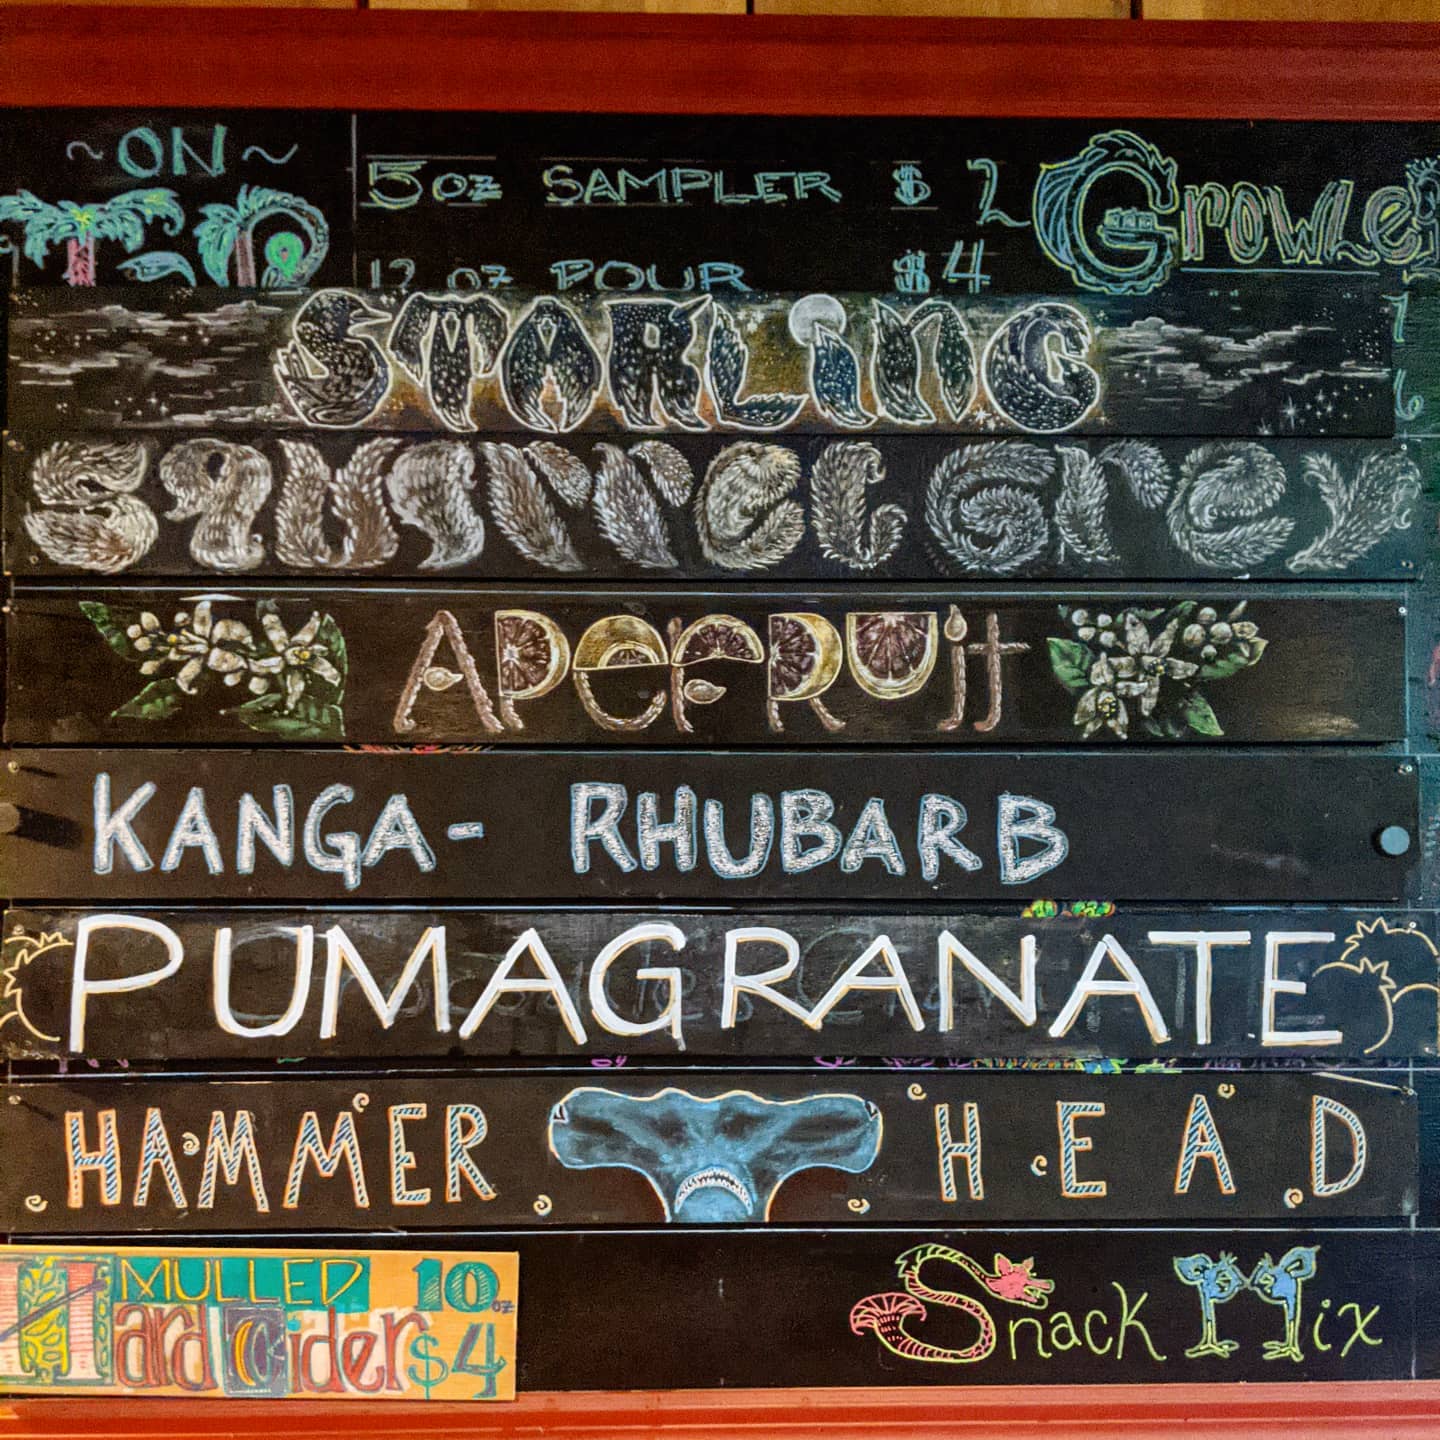 ~ON~
TAP
5 oz SAMPLER $2
12 oz POUR $4
Growler
STARLING
SQUIRREL GREY
APEFRUIT
KANGA- RHUBARB
PUMAGRANATE
HAMMER HEAD
MULLED
Hard Cider
10 oz
$4
Snack Mix